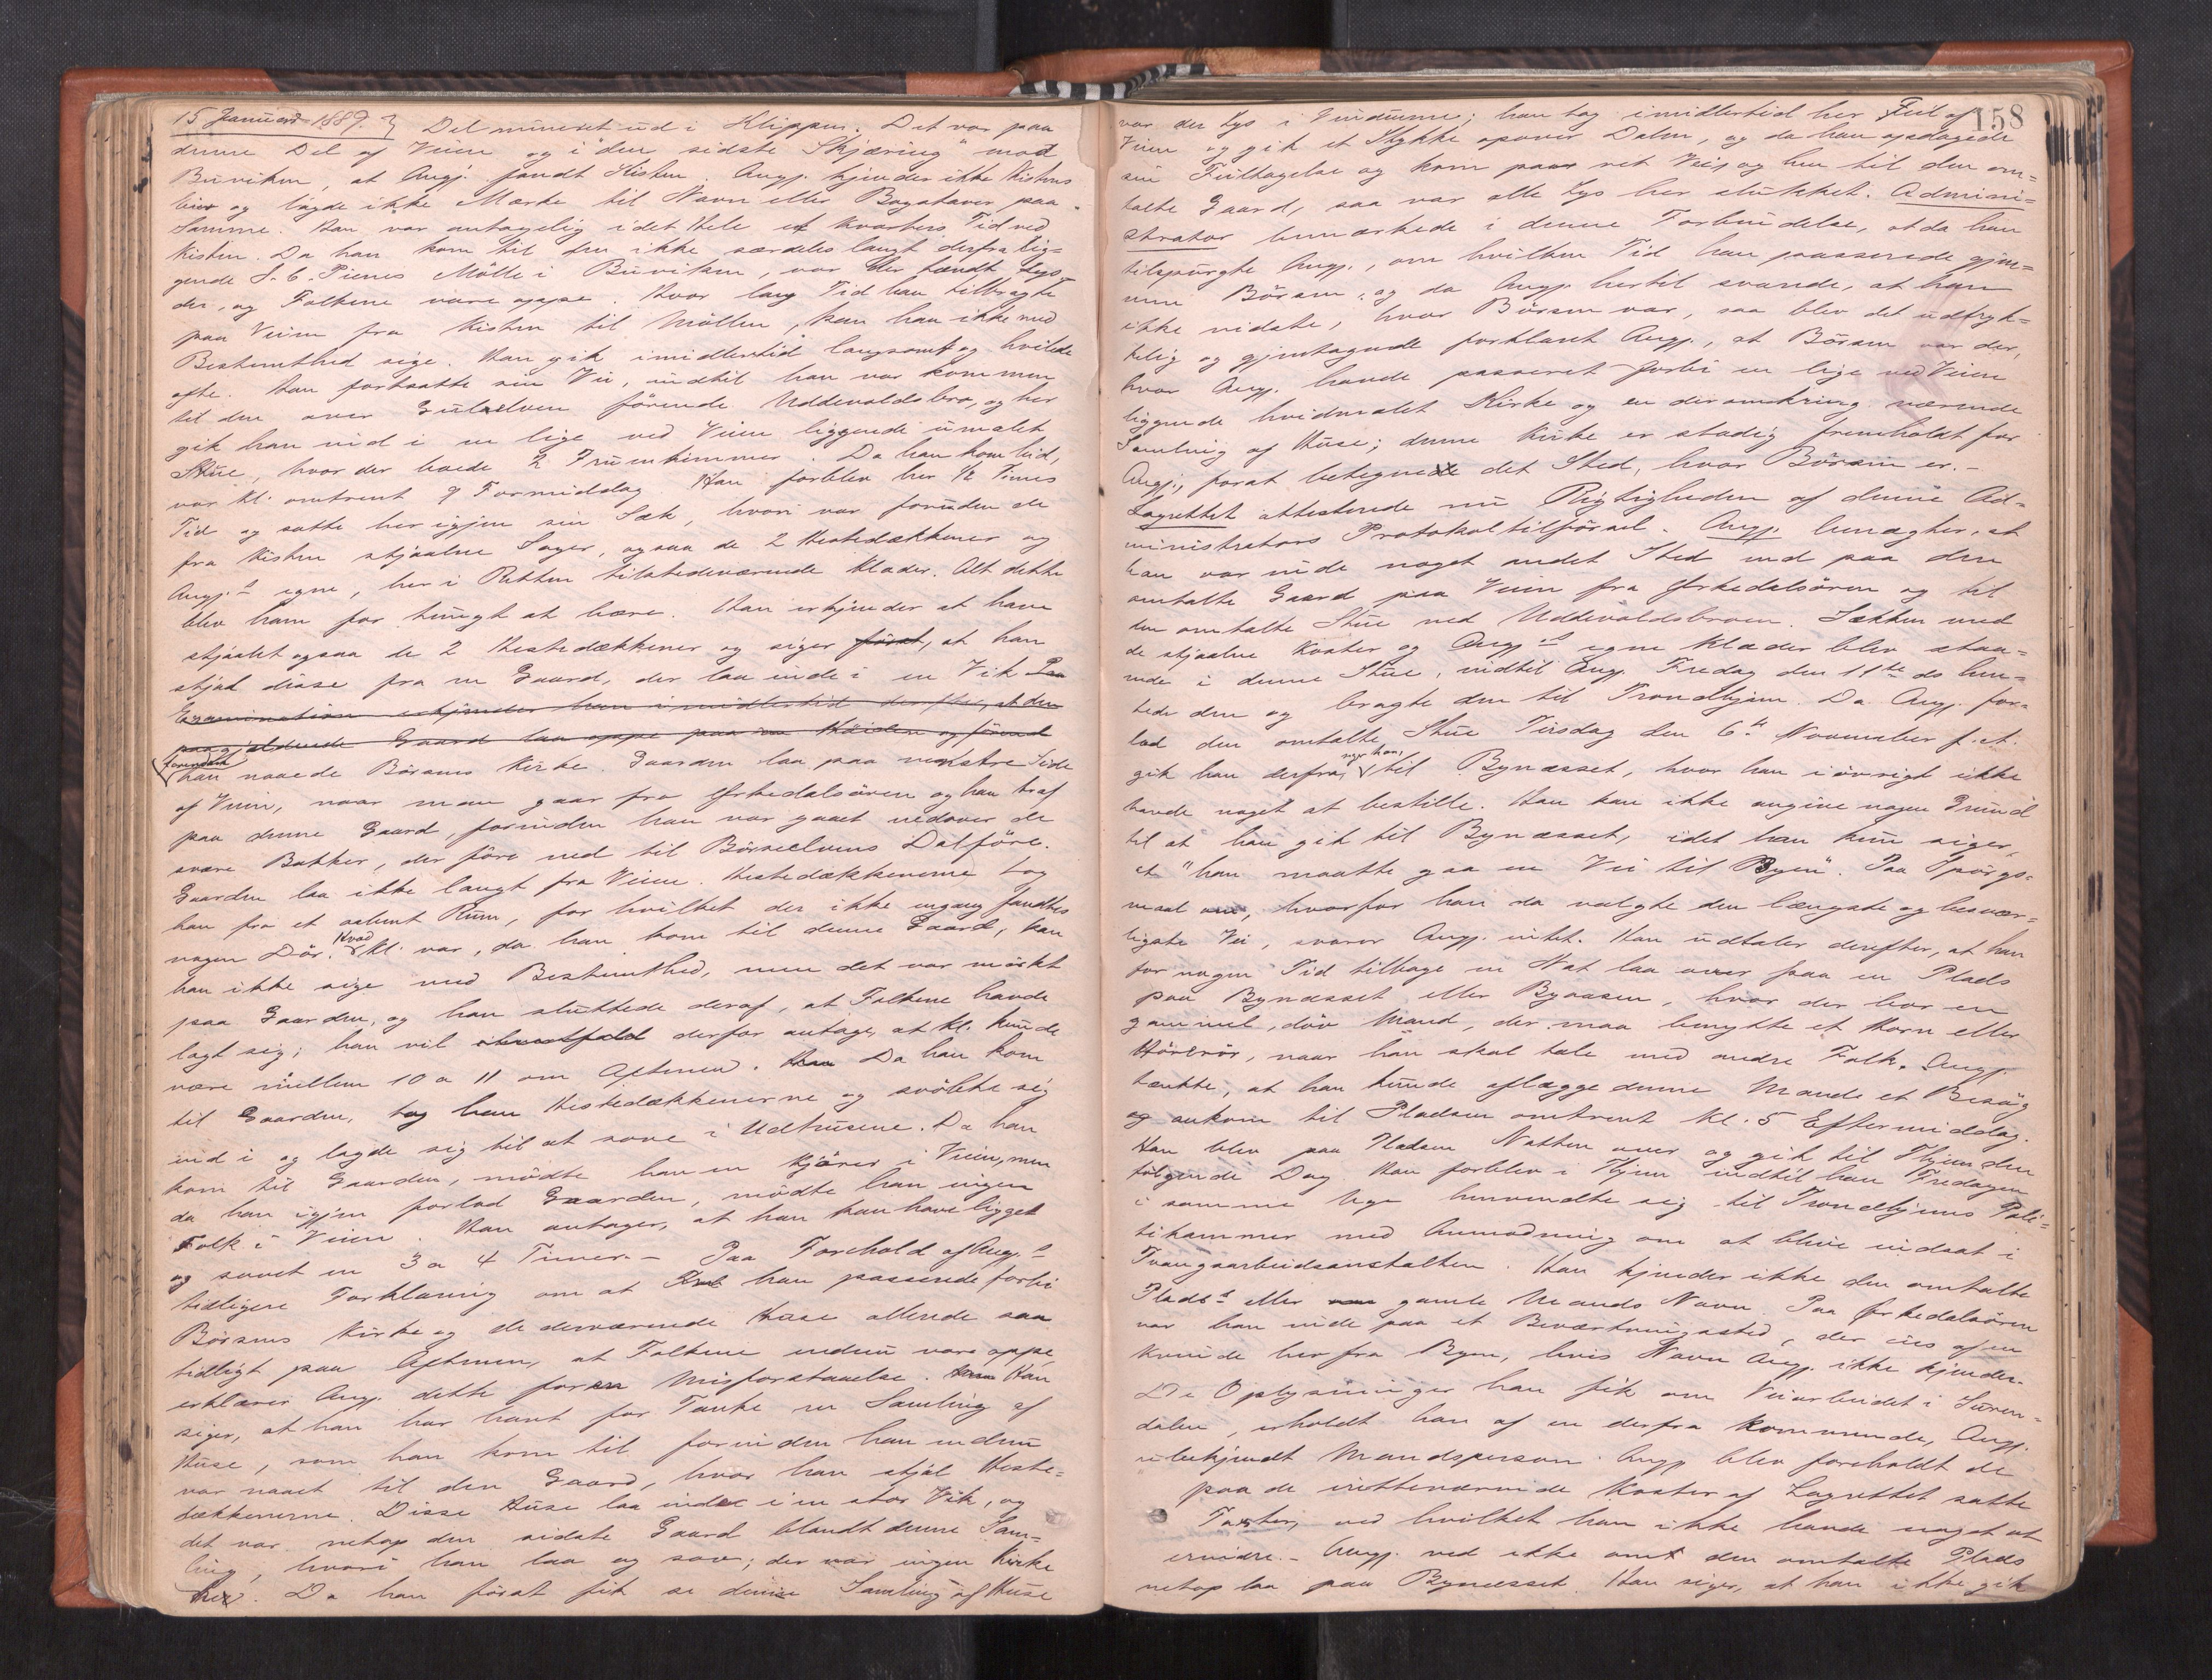 15 Januar 1889. } Del mineret ud i Klippen. Det var paa
denne Del af Veien og i "den sidste Skjæring" mod
Buviken, at Ang. fandt Kisten. Ang. kjender ikke Kistens
Eier og lagde ikke Mærke til Navn eller Bogstaver paa
Samme. Han var antagelig i det Hele et Kvarters Tid ved
Kisten. Da han kom til den ikke særdeles langt derfra lig-
gende S. C. Pienes Mölle i Buviken, var der tændt Lys
der, og Folkene vare oppe. Hvor lang Tid han tilbragte
paa Veien fra Kisten til Möllen, kan han ikke med
Bestemthed sige. Han gik imidlertid langsomt og hvilede
ofte. Han fortsatte sin Vei, indtil han var kommen
til den over Gulelven förende Uddevoldsbro, og her
gik han ind i en lige ved Veien liggende umalet
Stue, hvor der boede 2 Fruentimmer. Da han kom hid,
var Kl. omtrent 9 Formiddag. Han forblev her ½ Times
Tid og satte her igjen sin Sæk, hvori var foruden de
fra Kisten stjaalne Sager, ogsaa de 2 Hestedækkener og
Ang.s egne, her i Retten tilstedeværende Klæder. Alt dette
blev ham for tungt at bære. Han erkjender at have
stjaalet ogsaa de 2 Hestedækkener og siger först, at han
stjal disse fra en Gaard, der laa inde i en Vik Paa
Examination erkjender han imidlertid derefter, at den
paagjældende Gaard laa oppe paa en Höiden og forend
forinden
han naaede Börsens Kirke. Gaarden laa paa venstre Side
af Veien, naar man gaar fra Örkedalsören og han traf
paa denne Gaard, forinden han var gaaet nedover de
svære Bakker, der före ned til Börseelvens Dalföre.
Gaarden laa ikke langt fra Veien. Hestedækkenerne tog
han fra et aabent Rum, for hvilket der ikke engang fandtes
nogen Dör. Hvad Kl. var, da han kom til denne Gaard, kan
han ikke sige med Bestemthed, men det var mörkt
paa Gaarden, og han sluttede deraf, at Folkene havde
lagt sig; han vil derfor antage, at Kl. kunde
være mellem 10 a 11 om Aftenen. Han Da han kom
til Gaarden, tog han Hestedækkenerne og svöbte sig
ind i og lagde sig til at sove i Udhusene. Da han
kom til Gaarden, mödte han en Kjörer i Veien, men
da han igjen forlod Gaarden, mödte han ingen
Folk i Veien. Han antager, at han kan have ligget
og sovet en 3 a 4 Timer. – Paa Forehold af Ang.s
tidligere Forklaring om at han passerede forbi
Börsens Kirke og de derværende Huse allerede saa
tidligt paa Aftenen, at Folkene endnu vare oppe,
erklærer Ang. dette for en Misforstaaelse. Han
siger, at han har havt for Tanke en Samling af
Huse, som han kom til forinden han endnu
var naaet til den Gaard, hvor han stjal Heste-
dækkenerne. Disse Huse laa inde i en stor Vik, og
det var netop den sidste Gaard blandt denne Sam-
ling, hvori han laa og sov; der var ingen Kirke
her. Da han först fik se denne Samling af Huse
158
var der Lys i Vinduerne; han tog imidlertid her Feil af
Veien og gik et Stykke opover Dalen, og da han opdagede
sin Feiltagelse og kom paa ret Vei og hen til den om-
talte Gaard, saa var alle Lys her slukket. Admini-
strator bemærkede i denne Forbindelse, at da han
tilspurgte Ang., om hvilken Tid han passerede gjen-
nem Börsen, og da Ang. hertil svarede, at han
ikke vidste, hvor Börsen var, saa blev det udtryk-
kelig og gjentagende forklaret Ang., at Börsen var der,
hvor Ang. havde passeret forbi en lige ved Veien
liggende hvidmalet Kirke og en deromkring værende
Samling af Huse; denne Kirke er stadig fremholdt for
Ang., for at betegne det Sted, hvor Börsen er. –
Lagrettet attesterede nu Rigtigheden af denne Ad-
ministrators Protokoltilförsel. Ang. benægter, at
han var inde noget andet Sted end paa den
omtalte Gaard paa Veien fra Örkedalsören og til
den omtalte Stue ved Uddevoldsbroen. Sækken med
de stjaalne Koster og Ang.s egne Klæder blev staa-
ende i denne Stue, indtil Ang. Fredag den 11te ds hen-
tede den og bragte den til Trondhjem. Da Ang. for-
lod den omtalte Stue Tirsdag den 6te November f. A.
gik han derfra, siger han, til Bynæsset, hvor han iövrigt ikke
havde noget at bestille. Han kan ikke angive nogen Grund
til at han gik til Bynæsset, idet han kun siger,
at "han maatte gaa en Vei til Byen". Paa Spörgs-
maal om, hvorfor han da valgte den længste og besvær-
ligste Vei, svarer Ang. intet. Han udtaler derefter, at han
for nogen Tid tilbage en Nat laa over paa en Plads
paa Bynæsset eller Byaasen, hvor der bor en
gammel, döv Mand, der maa benytte et Horn eller
Hörerör, naar han skal tale med andre Folk. Ang.
tænkte, at han kunde aflægge denne Mand et Besög
og ankom til Pladsen omtrent Kl. 5 Eftermiddag.
Han blev paa Pladsen Natten over og gik til Hjem den
fölgende Dag. Han forblev i Hjem indtil han Fredagen
i samme Uge henvendte sig til Trondhjems Poli-
tikammer med Anmodning om at blive indsat i
Tvangsarbeidsanstalten. Han kjender ikke den omtalte
Plads's eller gamle Mands Navn. Paa Örkedalsören
var han inde paa et Beværtningssted, der eies af en
Kvinde her fra Byen, hvis Navn Ang. ikke kjender.
De Oplysninger han fik om Veiarbeidet i Suren-
dalen, erholdt han af en derfra kommende, Ang.
ubekjendt Mandsperson. Ang. blev foreholdt de
paa de iretteværende Koster af Lagrettet satte
Taxter, ved hvilket han ikke havde noget at
erindre. – Ang. ved ikke om den omtalte Plads
netop laa paa Bynæsset. Han siger, at han ikke gik